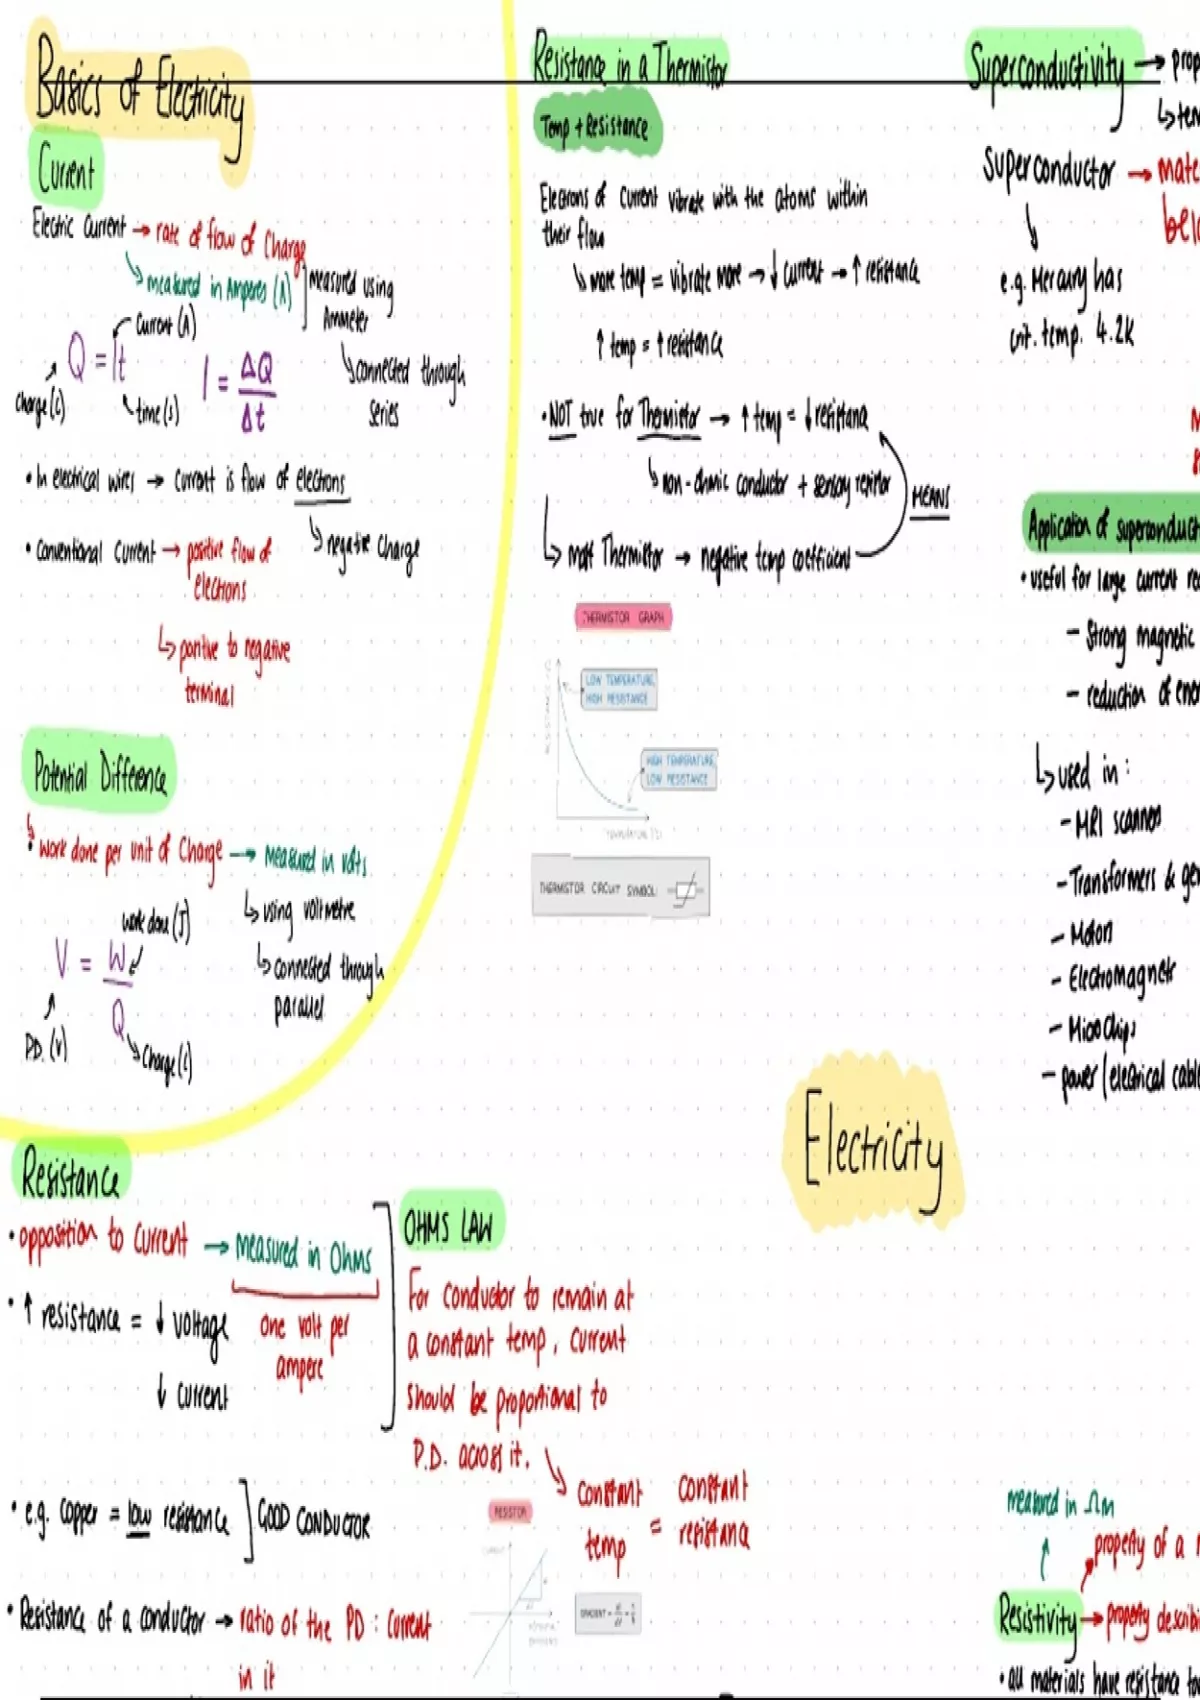 Basics of Electricity
Current
Electric current → rate of flow of charge
↳ measured in Amperes (A)
measured using
Ammeter
↳ connected through
series
current (A)
Q = It
charge (C)
time (s)
I = ΔQ
Δt
• In electrical wires → current is flow of electrons
↳ negative charge
• Conventional current → positive flow of
electrons
↳ positive to negative
terminal
Potential Difference
↳ work done per unit of charge → measured in volts
↳ using voltmetre
↳ connected through
parallel
work done (J)
V = W
Q
P.D. (V)
charge (C)
Resistance
• opposition to current → measured in Ohms
one volt per
ampere
• ↑ resistance = ↓ voltage
↓ current
• e.g. copper = low resistance ] GOOD CONDUCTOR
• Resistance of a conductor → ratio of the PD : current
in it
OHMS LAW
For conductor to remain at
a constant temp, current
should be proportional to
P.D. across it.
↳ constant temp = constant resistance
RESISTOR
GRADIENT
Resistance in a Thermistor
Temp + Resistance
Electrons of current vibrate with the atoms within
their flow
↳ more temp = vibrate more → ↓ current → ↑ resistance
↑ temp = ↑ resistance
• NOT true for Thermistor → ↑ temp = ↓ resistance
↳ non-ohmic conductor + sensory resistor
MEANS
↳ most Thermistor → negative temp coefficient
THERMISTOR GRAPH
LOW TEMPERATURE,
HIGH RESISTANCE
HIGH TEMPERATURE,
LOW RESISTANCE
THERMISTOR CIRCUIT SYMBOL:
Electricity
Superconductivity → prop
↳ tem
Superconductor → mate
belo
e.g. Mercury has
crit. temp. 4.2K
Application of superconduct
• useful for large current re
- Strong magnetic
- reduction of ener
↳ used in:
- MRI scanners
- Transformers & gen
- Motors
- Electromagnets
- MicroChips
- power/electrical cable
measured in Ωm
property of a
Resistivity → property describi
• all materials have resistance to